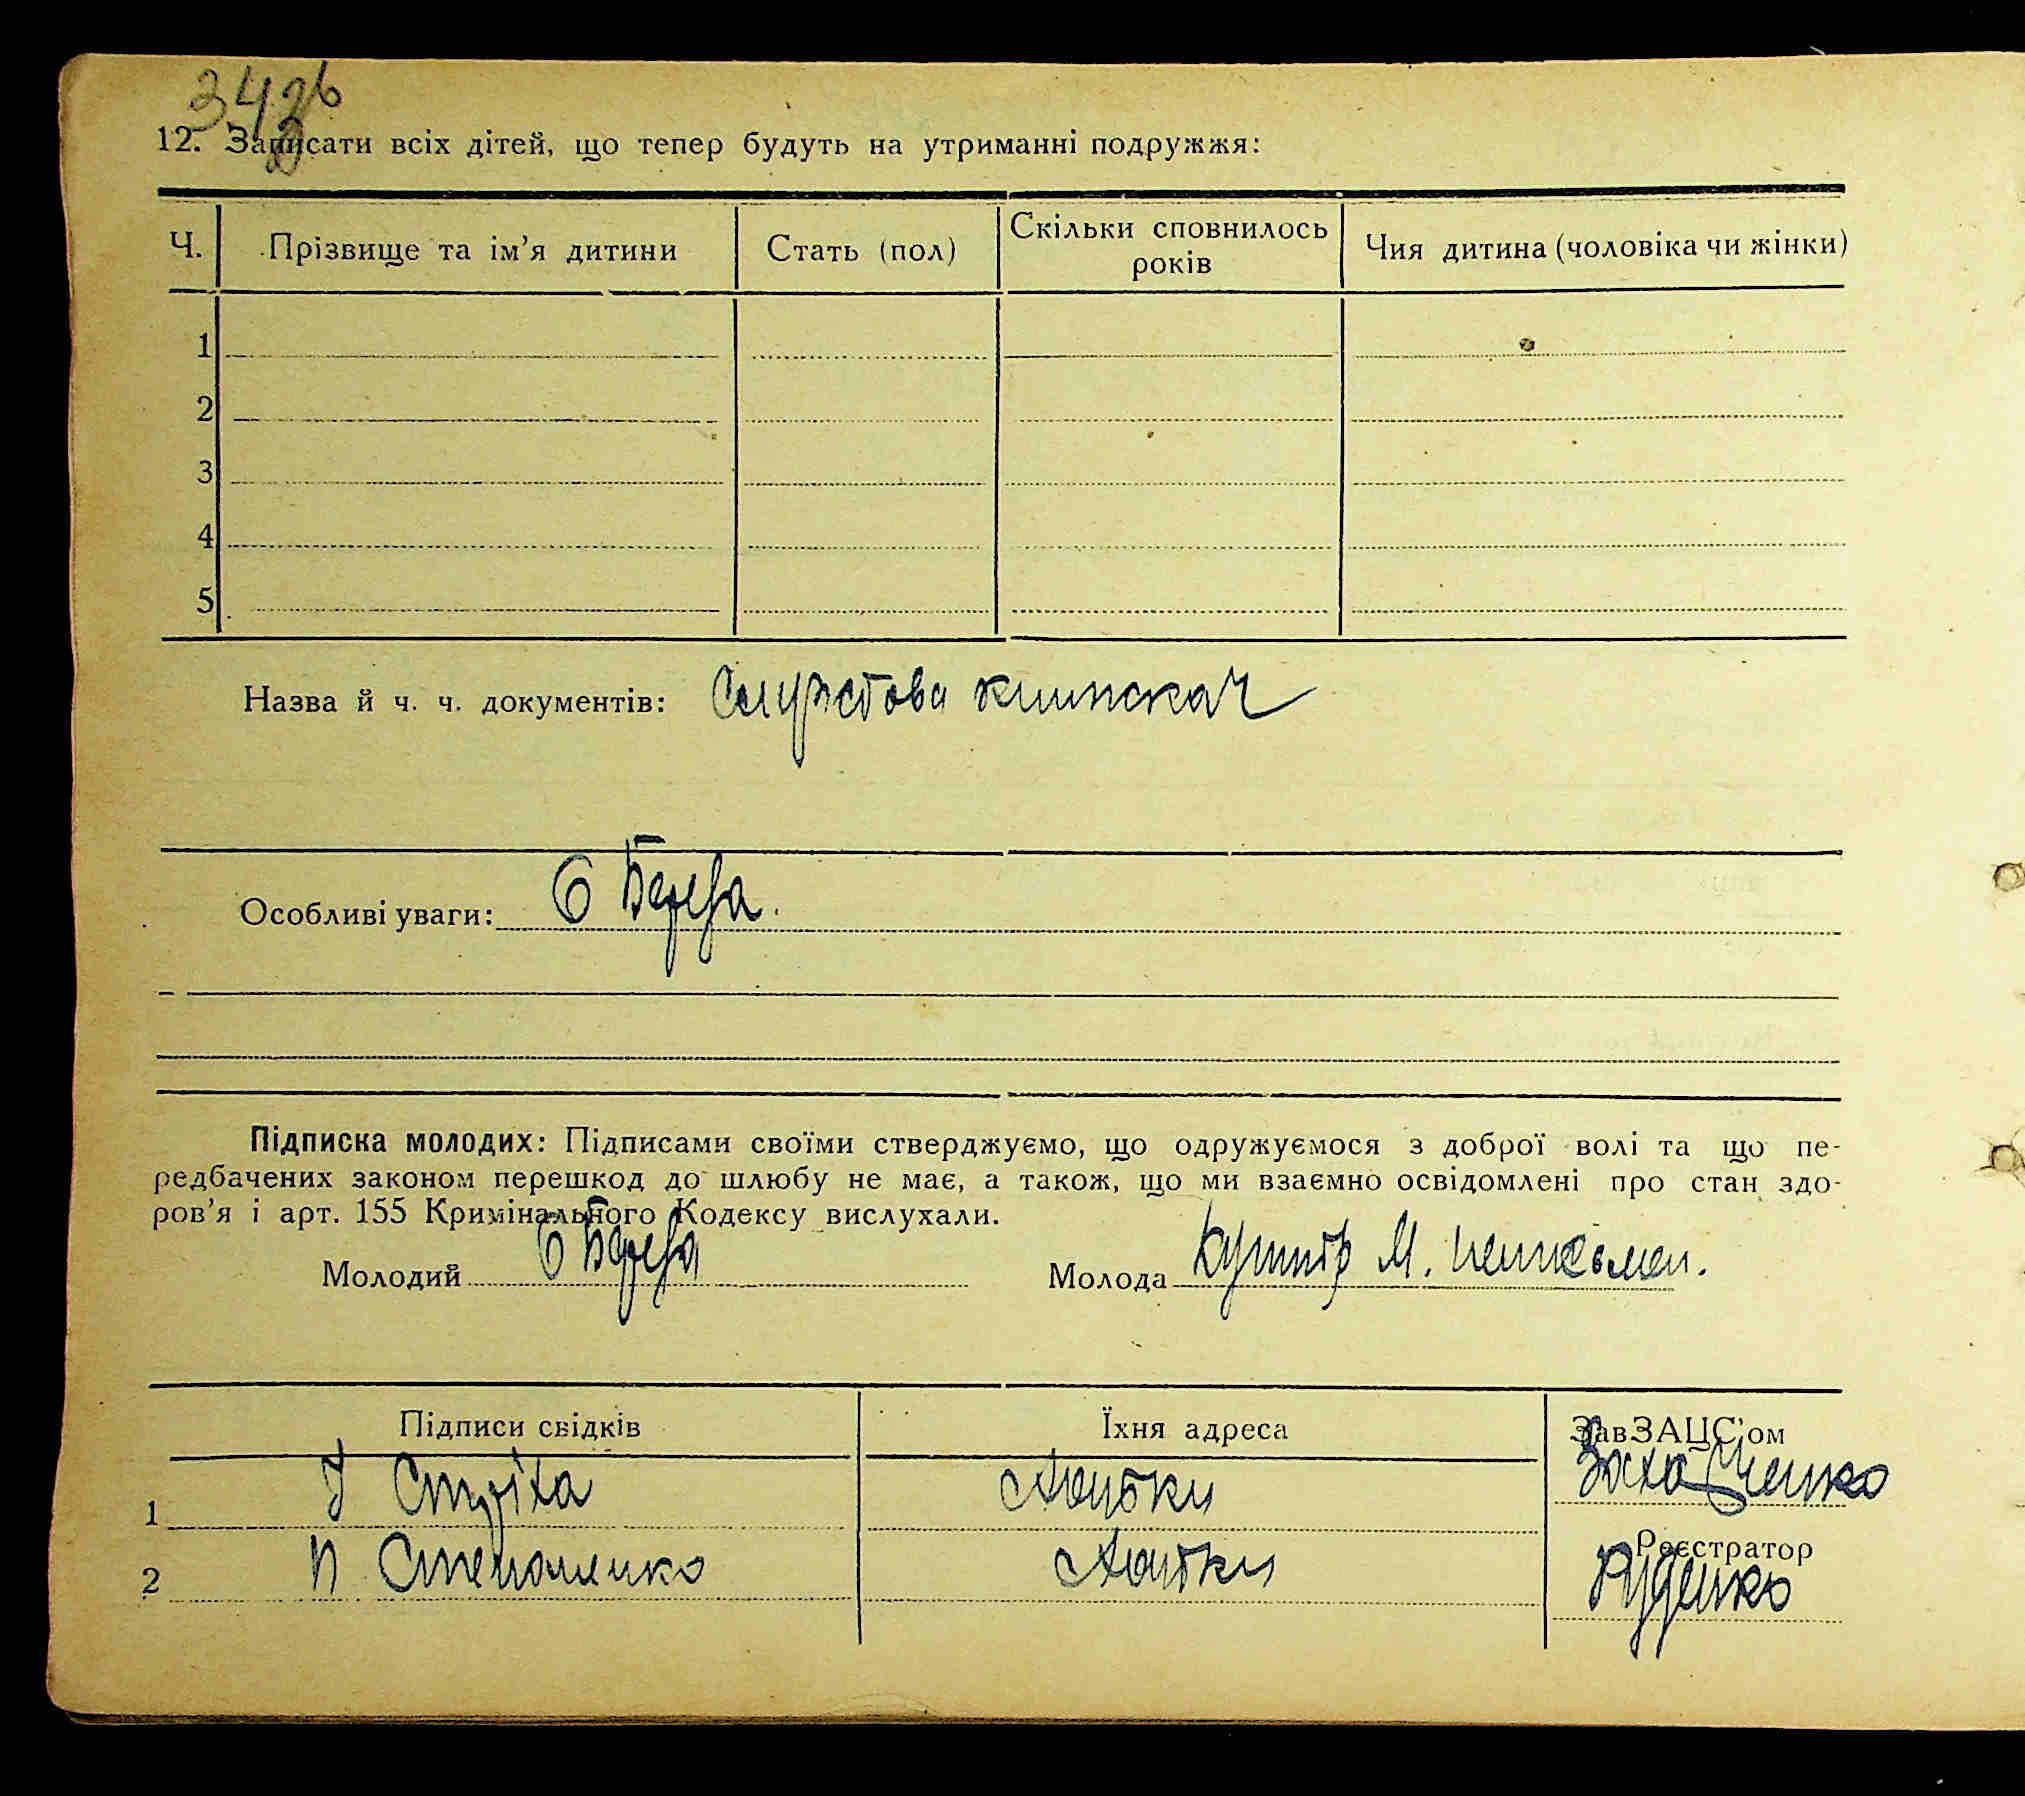 34зв
12. Записати всіх дітей, що тепер будуть на утриманні подружжя:
Ч. Прізвище та ім’я дитини Стать (пол) Скільки сповнилось років Чия дитина (чоловіка чи жінки)
1
2
3
4
5
Назва й ч. ч. документів: Службова книжка
Особливі уваги: Є Береза.
Підписка молодих: Підписами своїми стверджуємо, що одружуємося з доброї волі та що пе-
редбачених законом перешкод до шлюбу не має, а також, що ми взаємно освідомлені про стан здо-
ров’я і арт. 155 Кримінального Кодексу вислухали.
Молодий Є Береза Молода Кушнір М.
Підписи свідків Їхня адреса ЗавЗАЦС’ом
1 І Стріха
2 П Степаненко
Реєстратор
Руденко